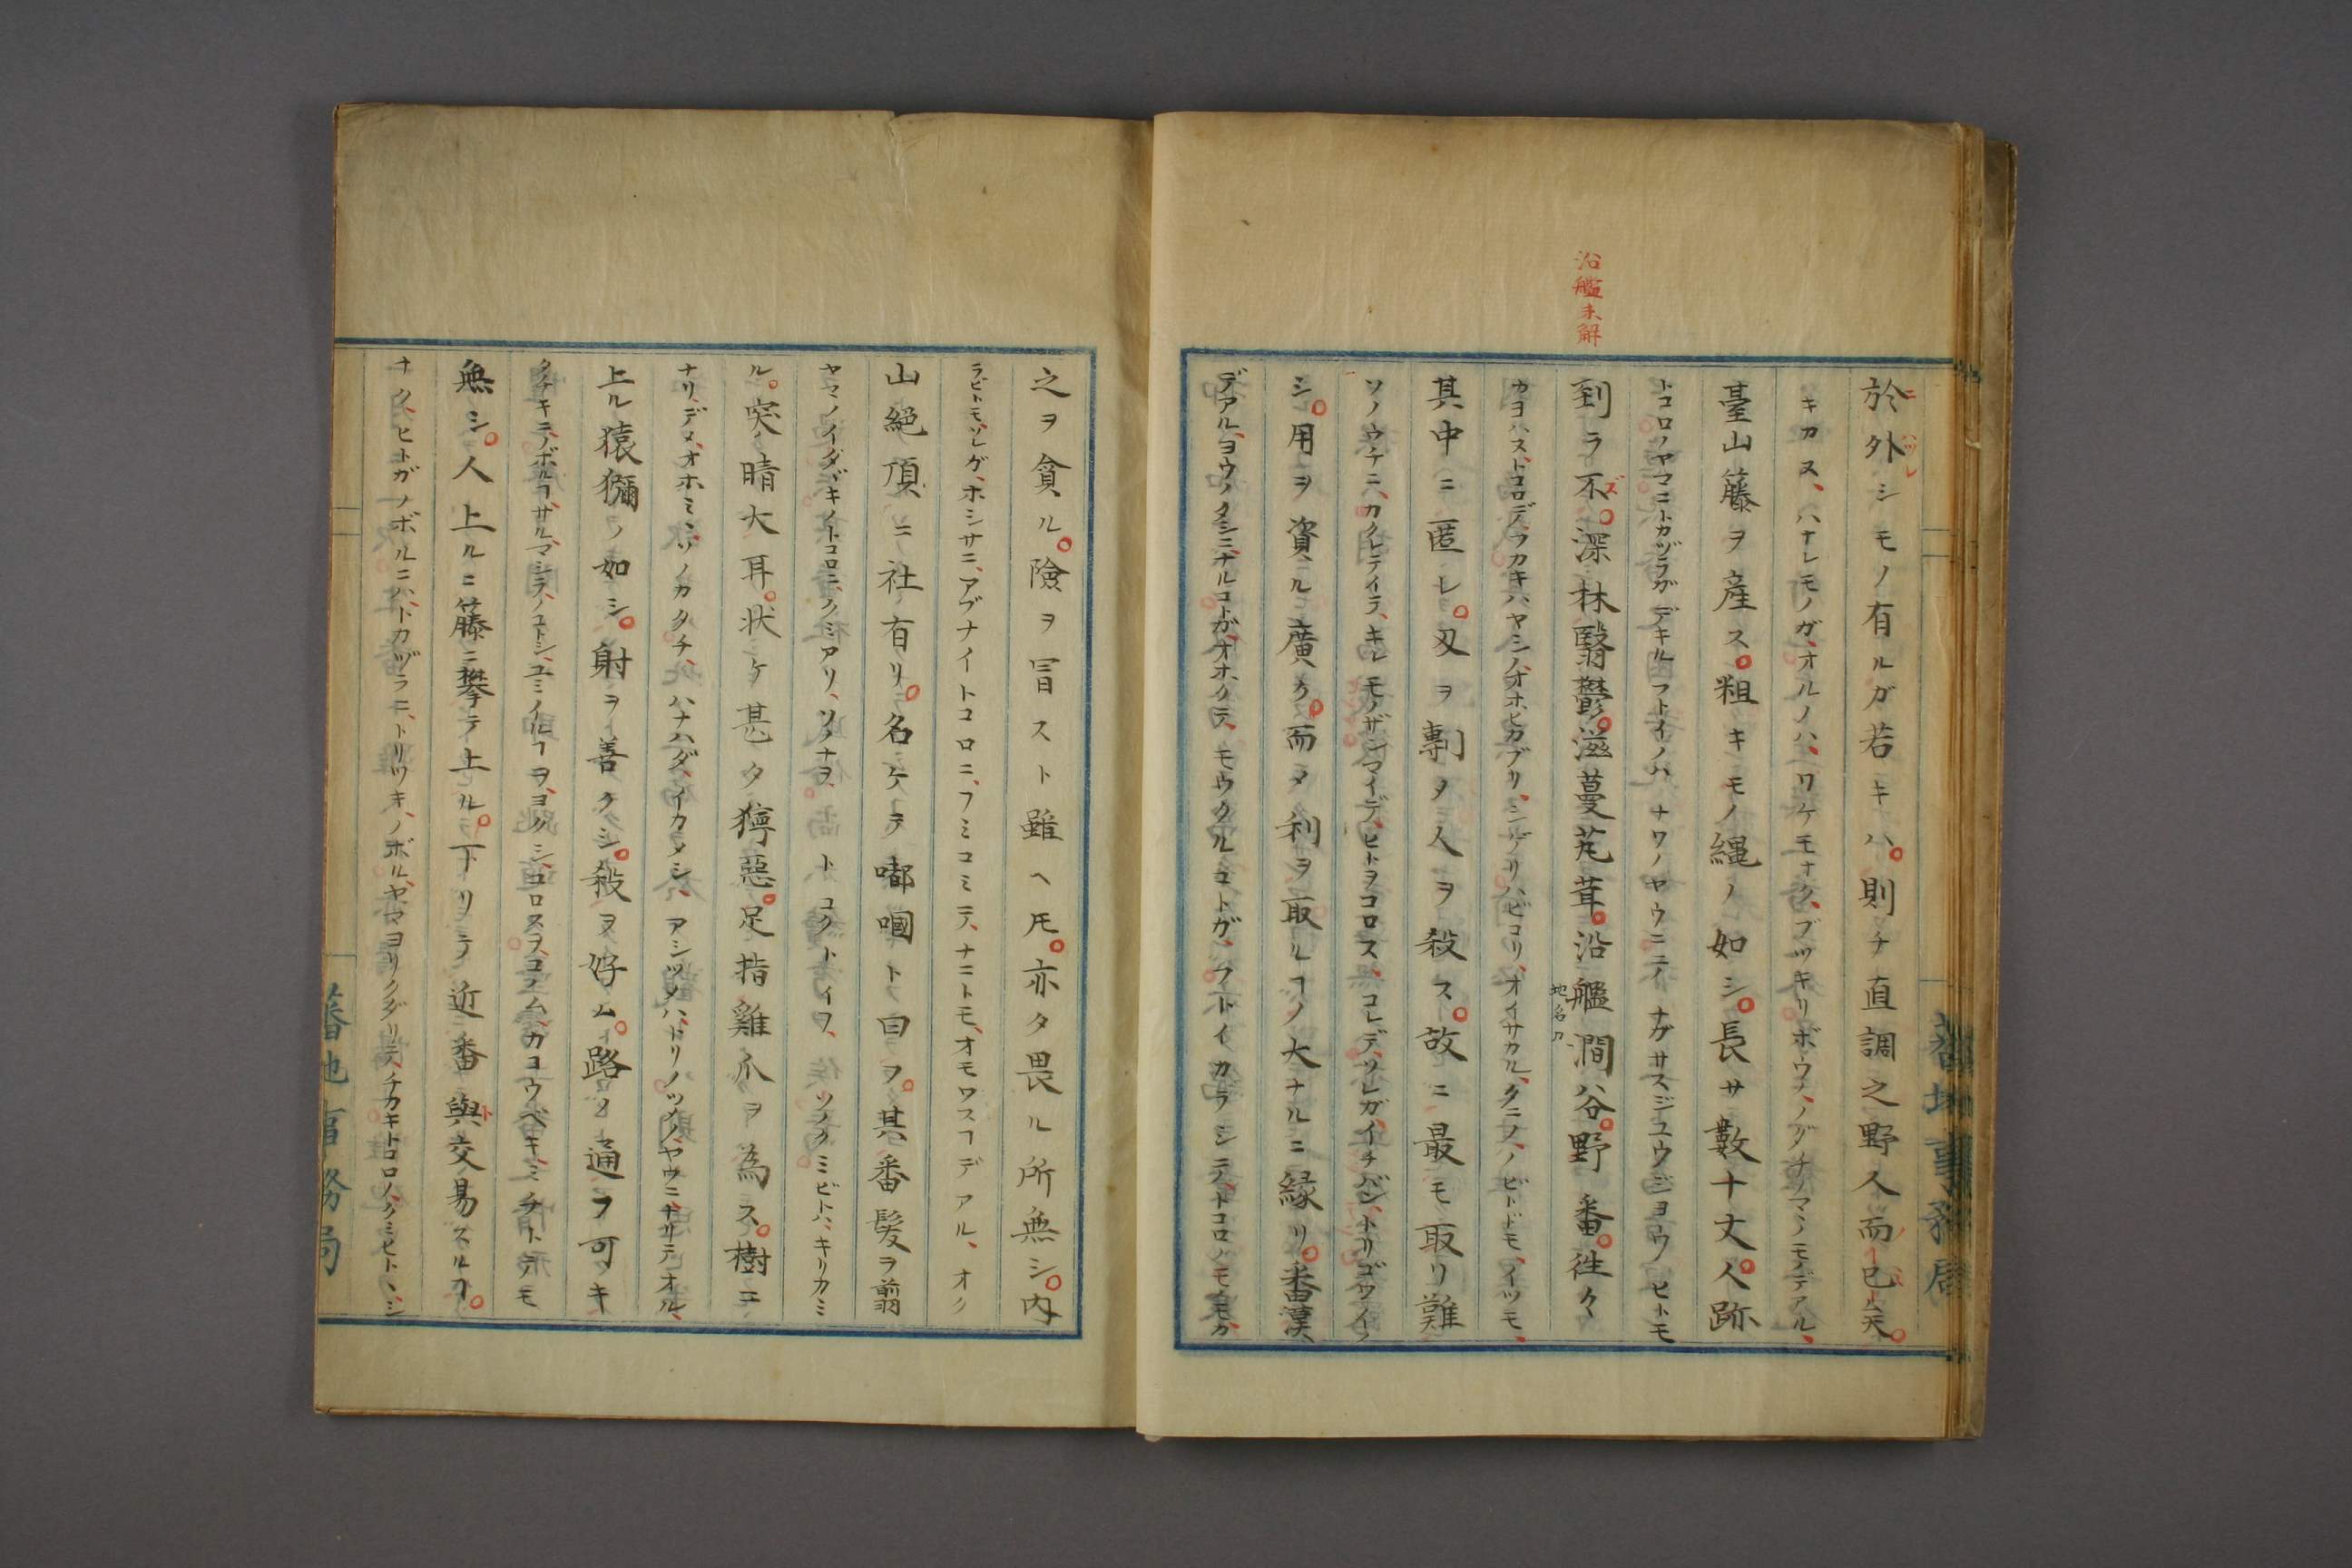 沿艦未解
於外シモノ有ルガ若キハ。則チ直調之野人而已矣。
キカヌ、ハナレモノガ、オルノハ、ワケモナク、ブツキリボウノ、ノダチノマヽノモノデアル、
臺山藤ヲ産ス。粗キモノ縄ノ如シ。長サ數十丈。人跡
トコロノヤマニトカヅラガデキルフトイノハナワノヤウニテナガサスジユウジヨウヒトモ
到ラ不。深林翳鬱。滋蔓茺茸。沿艦澗谷。野番。徃々
地名カ
カヨハス、トコロデ、フカキハヤシノ、オホヒカブリ、シゲリハビコリ、オイサカル、タニノ、ノビトドモ、イツモ、
其中ニ匿レ。刄ヲ剸タ人ヲ殺ス。故ニ最モ取リ難
ソノウチニ、カクレテイテ、キレモノザンマイデ、ヒトヲコロス、コレデ、ソレガ、イチバン、トリゴワイノ
シ。用ヲ資ル廣ク。而メ利ヲ取ルヿノ大ナルニ縁リ。番漢
デアル、ヨウノタシニ、ナルコトガ、オホクテ、モウクルコトガ、フトイカラシテ、トコロノモノモカ
之ヲ貪ル。險ヲ冒スト雖ヘ𪜈。亦タ畏ル所無シ。内
ラビトモ、ソレゲ、ホシサニ、アブナイトコロニ、フミコミテ、ナニトモ、オモワスヿデアル、オク
山絶頂ニ社有リ。名ケテ嘟嘓ト曰フ。其番髪ヲ翦
ヤマノイタヾキノトコロニ、クミアリ、ソノナヲ、トコクトイフ、ソノクミビトハ、キリカミ
ル。突晴大耳。状ケ甚タ獰惡。足指雞爪ヲ為ス。樹ニ
ナリ、デメ、オホミヽ、ソノカタチ、ハナハダ、イカメシ、アシツメハ、トリノツメノヤウニ、ナリテオル、
上ル猿獼ノ如シ。射ヲ善クシ。殺ヲ好ム。路ノ通フ可キ
クチキニ、ノボルヿ、サルマシラノコトシ、ユミイルヿヲ、ヨクシ、コロスヲ、コノム、カコウベキ、ミチトテモ
無シ。人上ルニ藤ニ攀テ上ル。下リテ近番與交易スルヿ。
ナク、ヒトガノボルニハ、トカヅラニ、トリツキ、ノボル、ヤマヨリクダリテ、チカキトコロノ、クミヒトヽ、シ
蕃地事務局
蕃地事務局